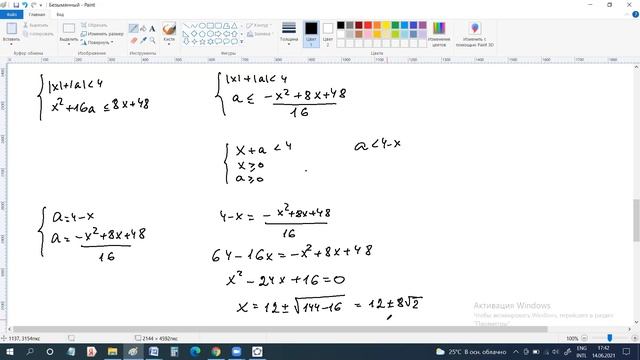 Безымянный - Paint
Вставить
Вырезать
Копировать
Выделить
Обрезать
Изменить размер
Повернуть
Кисти
Контур
Заливка
Толщина
Цвет 1
Цвет 2
Изменение цветов
Изменить с помощью Paint 3D
Буфер обмена
Изображение
Инструменты
Фигуры
Цвета
|x|+|a|<4
x²+16a≤8x+48
|x|+|a|<4
a ≤ -x²+8x+48
16
x+a<4
x≥0
a≥0
a<4-x
a=4-x
a= -x²+8x+48
16
4-x = -x²+8x+48
16
64-16x=-x²+8x+48
x²-24x+16=0
x=12±√144-16 = 12±8√2
Активация Windows
Чтобы активировать Windows, перейдите в раздел
"Параметры".
1137, 3154пкс
2144 × 4592пкс
100%
25°C В осн. облачно
ENG
INTL
17:42
14.06.2021